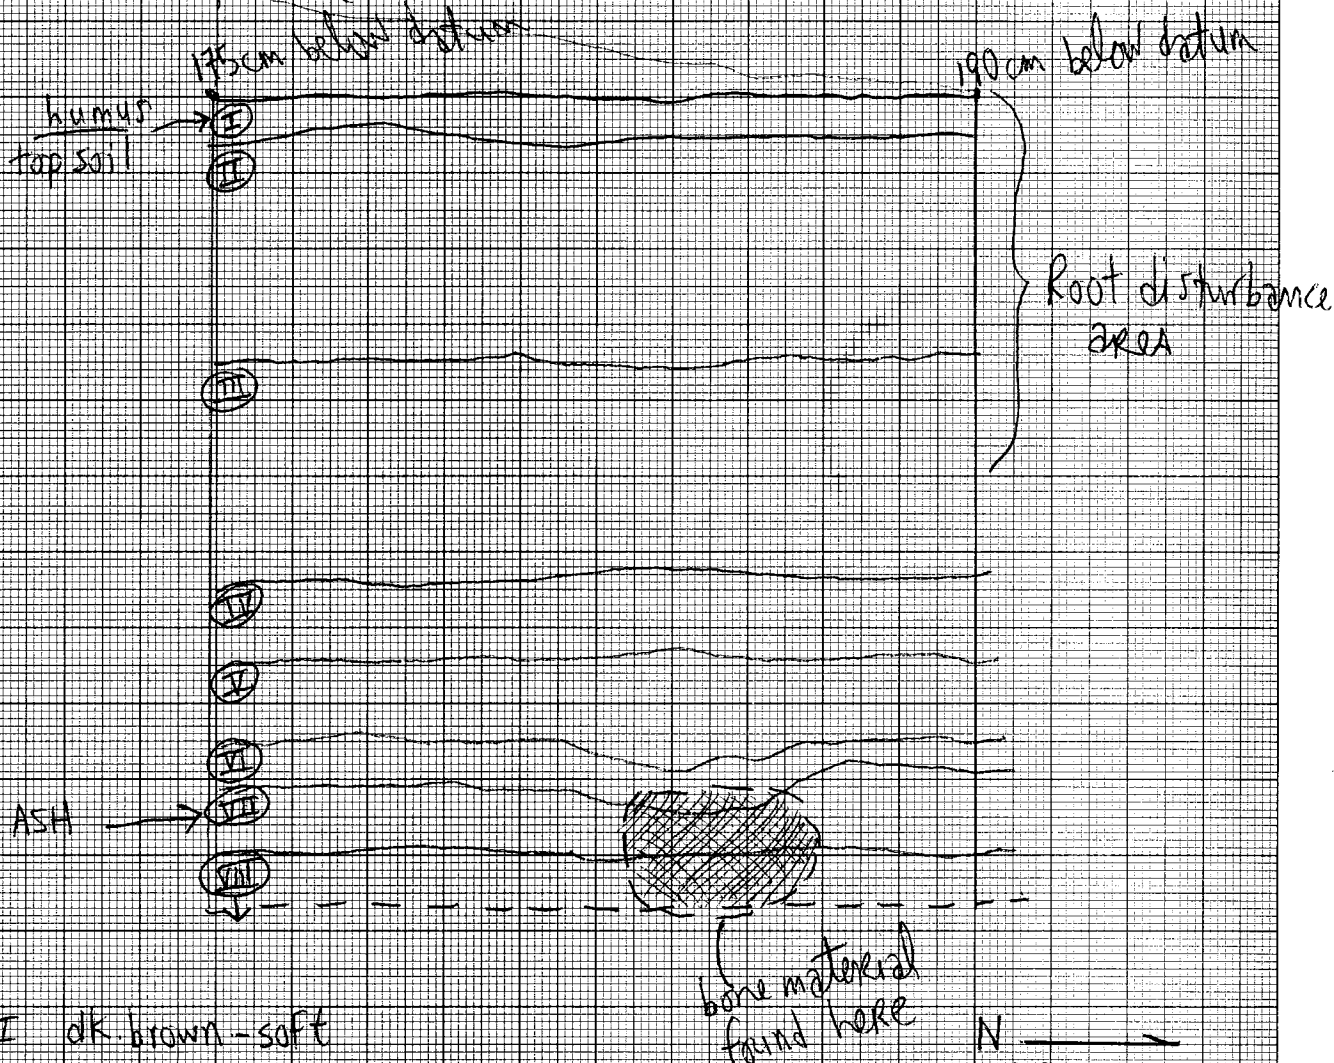 175cm below datum
190cm below datum
humus
top soil
I
II
Root disturbance
area
III
IV
V
VI
VII
ASH
VIII
bone material
found here
I dk. brown - soft
N